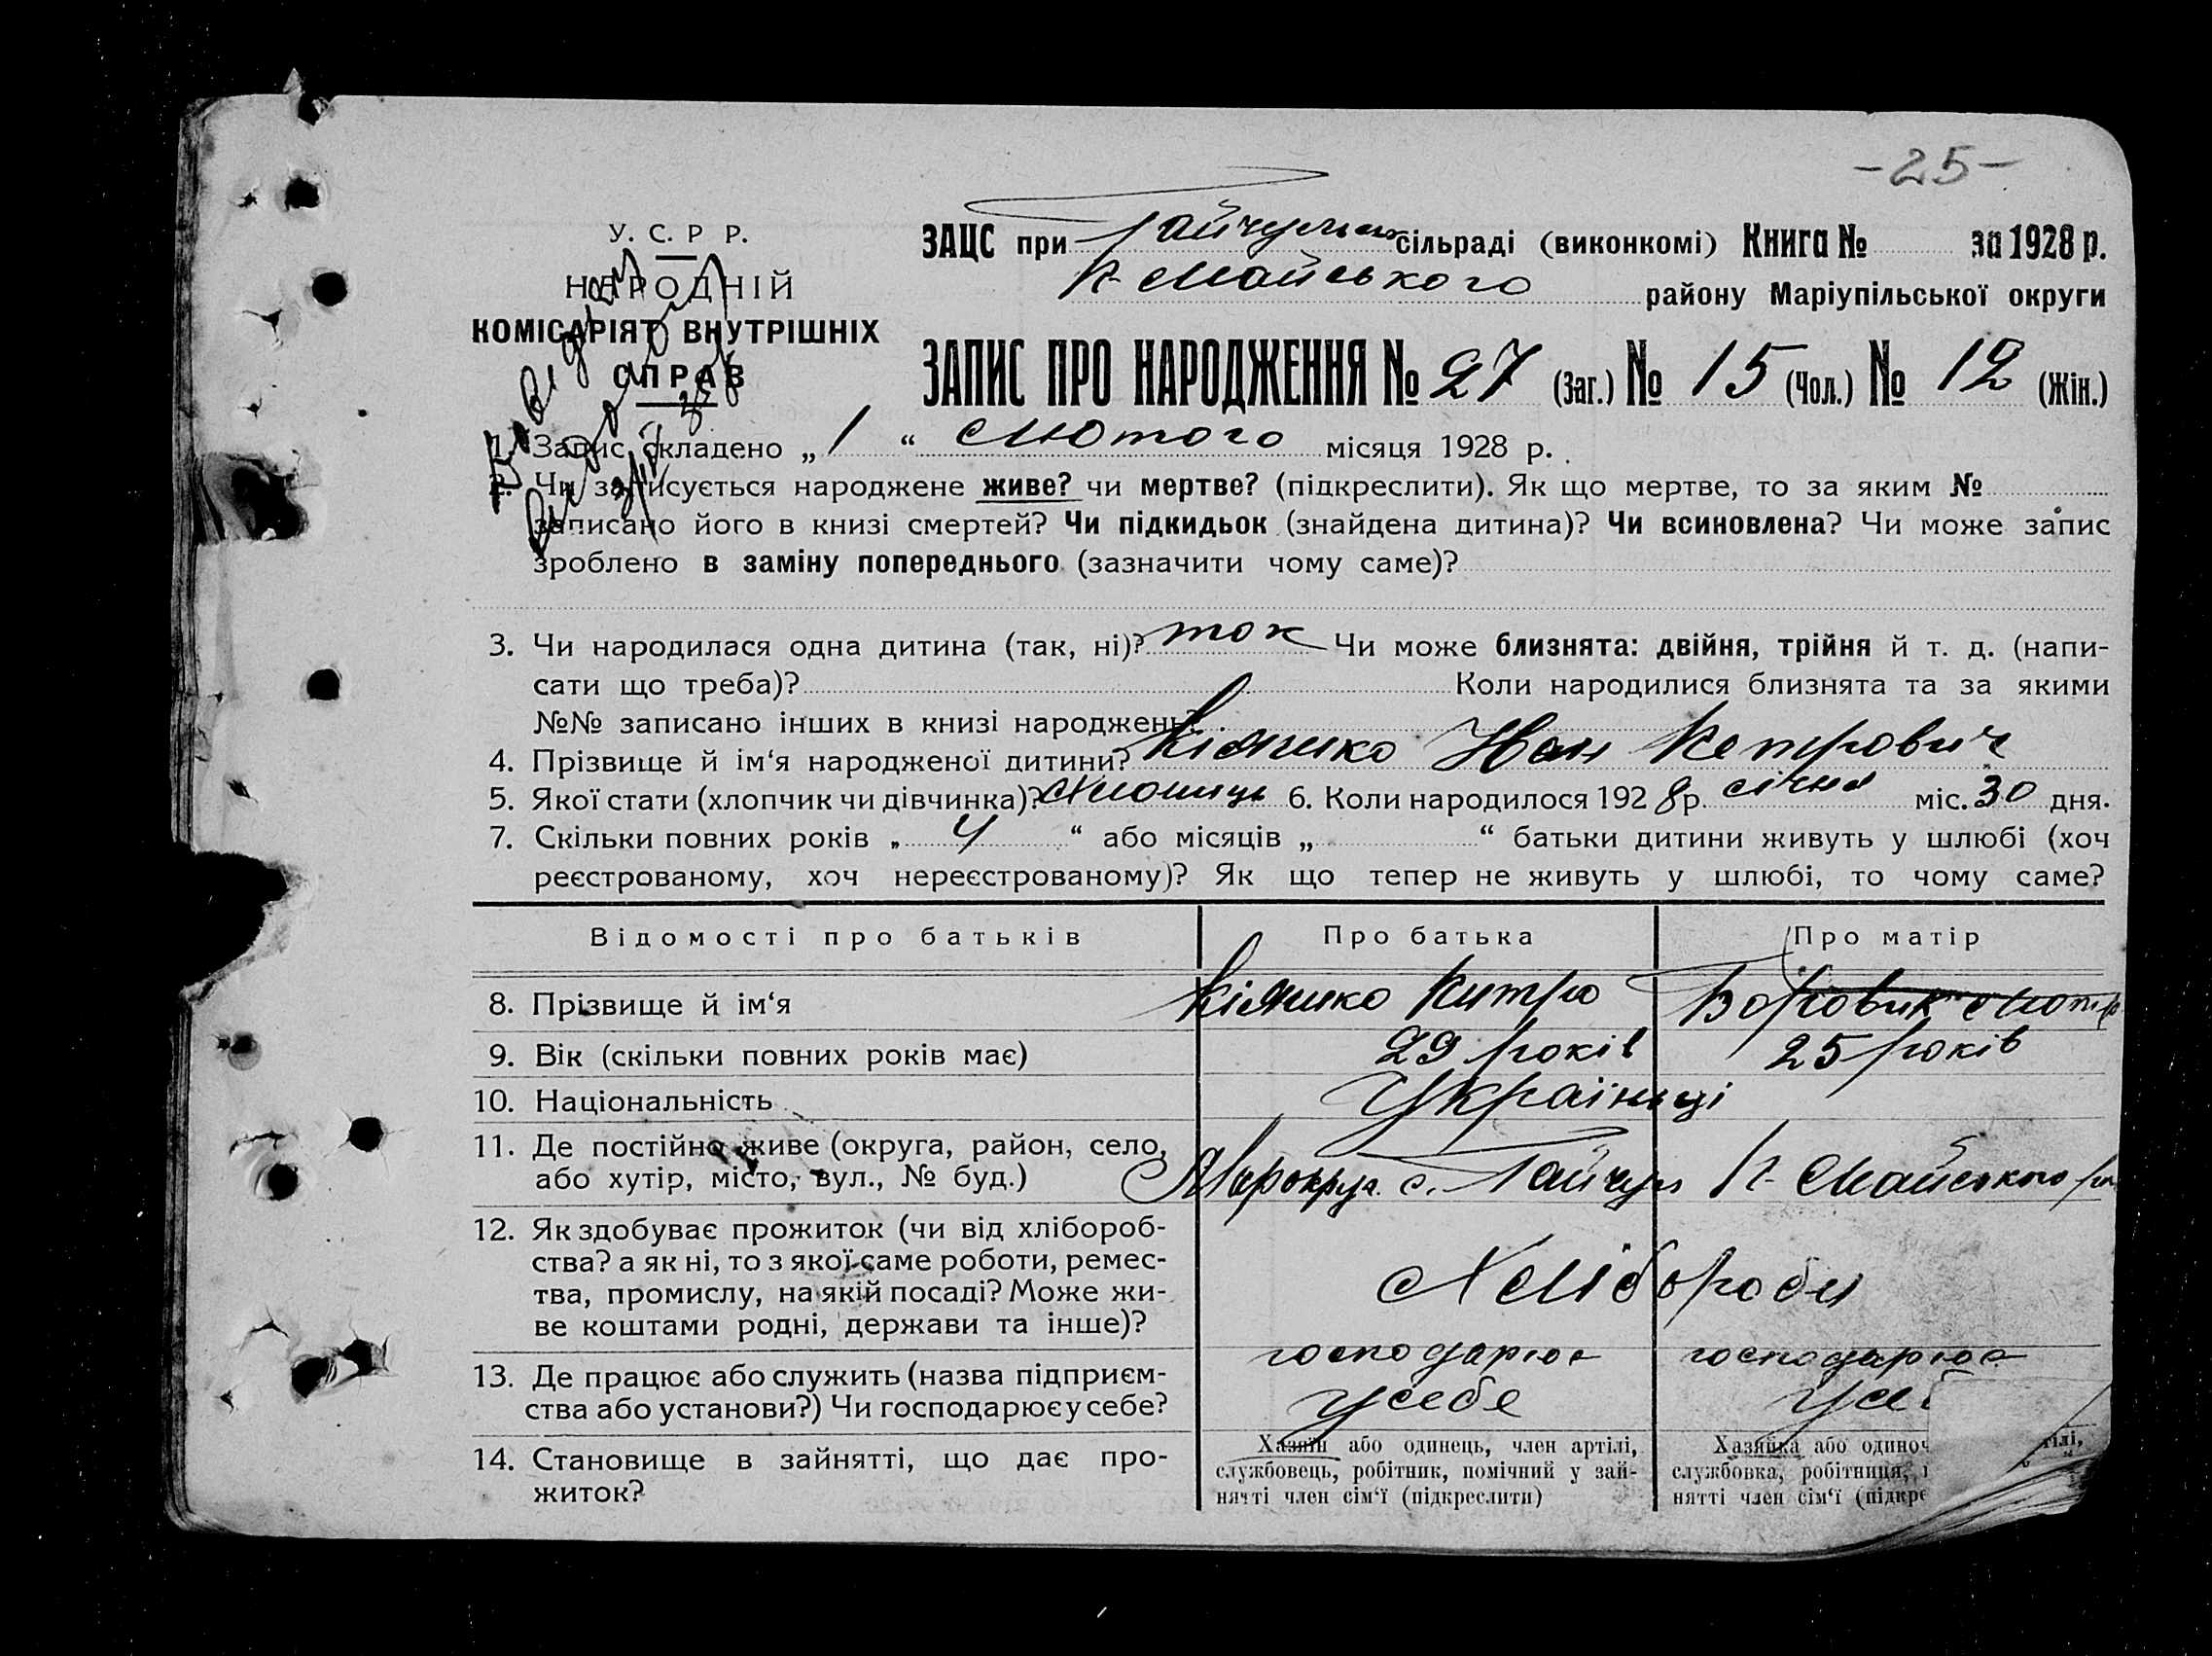 -25-
У. С. Р Р.
НАРОДНІЙ
КОМІСАРІЯТ ВНУТРІШНІХ
СПРАВ
ЗАЦС при Гайчульсь сільраді (виконкомі) Книга № за 1928 р.
Н-Майського району Маріупільської округи
ЗАПИС ПРО НАРОДЖЕННЯ № 27 (Заг.) № 15 (Чол.) № 12 (Жін.)
1. Запис складено „1“ Лютого місяця 1928 р.
2. Чи записується народжене живе? чи мертве? (підкреслити). Як що мертве, то за яким №
записано його в книзі смертей? Чи підкидьок (знайдена дитина)? Чи всиновлена? Чи може запис
зроблено в заміну попереднього (зазначити чому саме)?
3. Чи народилася одна дитина (так, ні)? так Чи може близнята: двійня, трійня й т. д. (напи-
сати що треба)? Коли народилися близнята та за якими
№№ записано інших в книзі народжень?
4. Прізвище й ім‘я народженої дитини? Іван Петрович
5. Якої стати (хлопчик чи дівчинка)? Хлопець 6. Коли народилося 1928 р. січня міс. 30 дня.
7. Скільки повних років „4“ або місяців „ “ батьки дитини живуть у шлюбі (хоч
реєстрованому, хоч нереєстрованому)? Як що тепер не живуть у шлюбі, то чому саме?
Відомості про батьків Про батька Про матір
8. Прізвище й ім‘я Питро Боровик Мотр
9. Вік (скільки повних років має) 29 років 25 років
10. Національність Українці
11. Де постійно живе (округа, район, село,
або хутір, місто, вул., № буд.) Марокруга с. Гайчул Н-Майського
12. Як здобуває прожиток (чи від хлібороб-
ства? а як ні, то з якої саме роботи, ремес-
тва, промислу, на якій посаді? Може жи-
ве коштами родні, держави та інше)? Хлібороби
13. Де працює або служить (назва підприєм-
ства або установи?) Чи господарює у себе? господарює у себе господарює у се
14. Становище в зайнятті, що дає про-
житок?
Хазяїн або одинець, член артілі,
службовець, робітник, помічний у зай-
нятті член сім‘ї (підкреслити)
Хазяйка або одиноч
службовка, робітниця,
нятті член сім‘ї (підкре